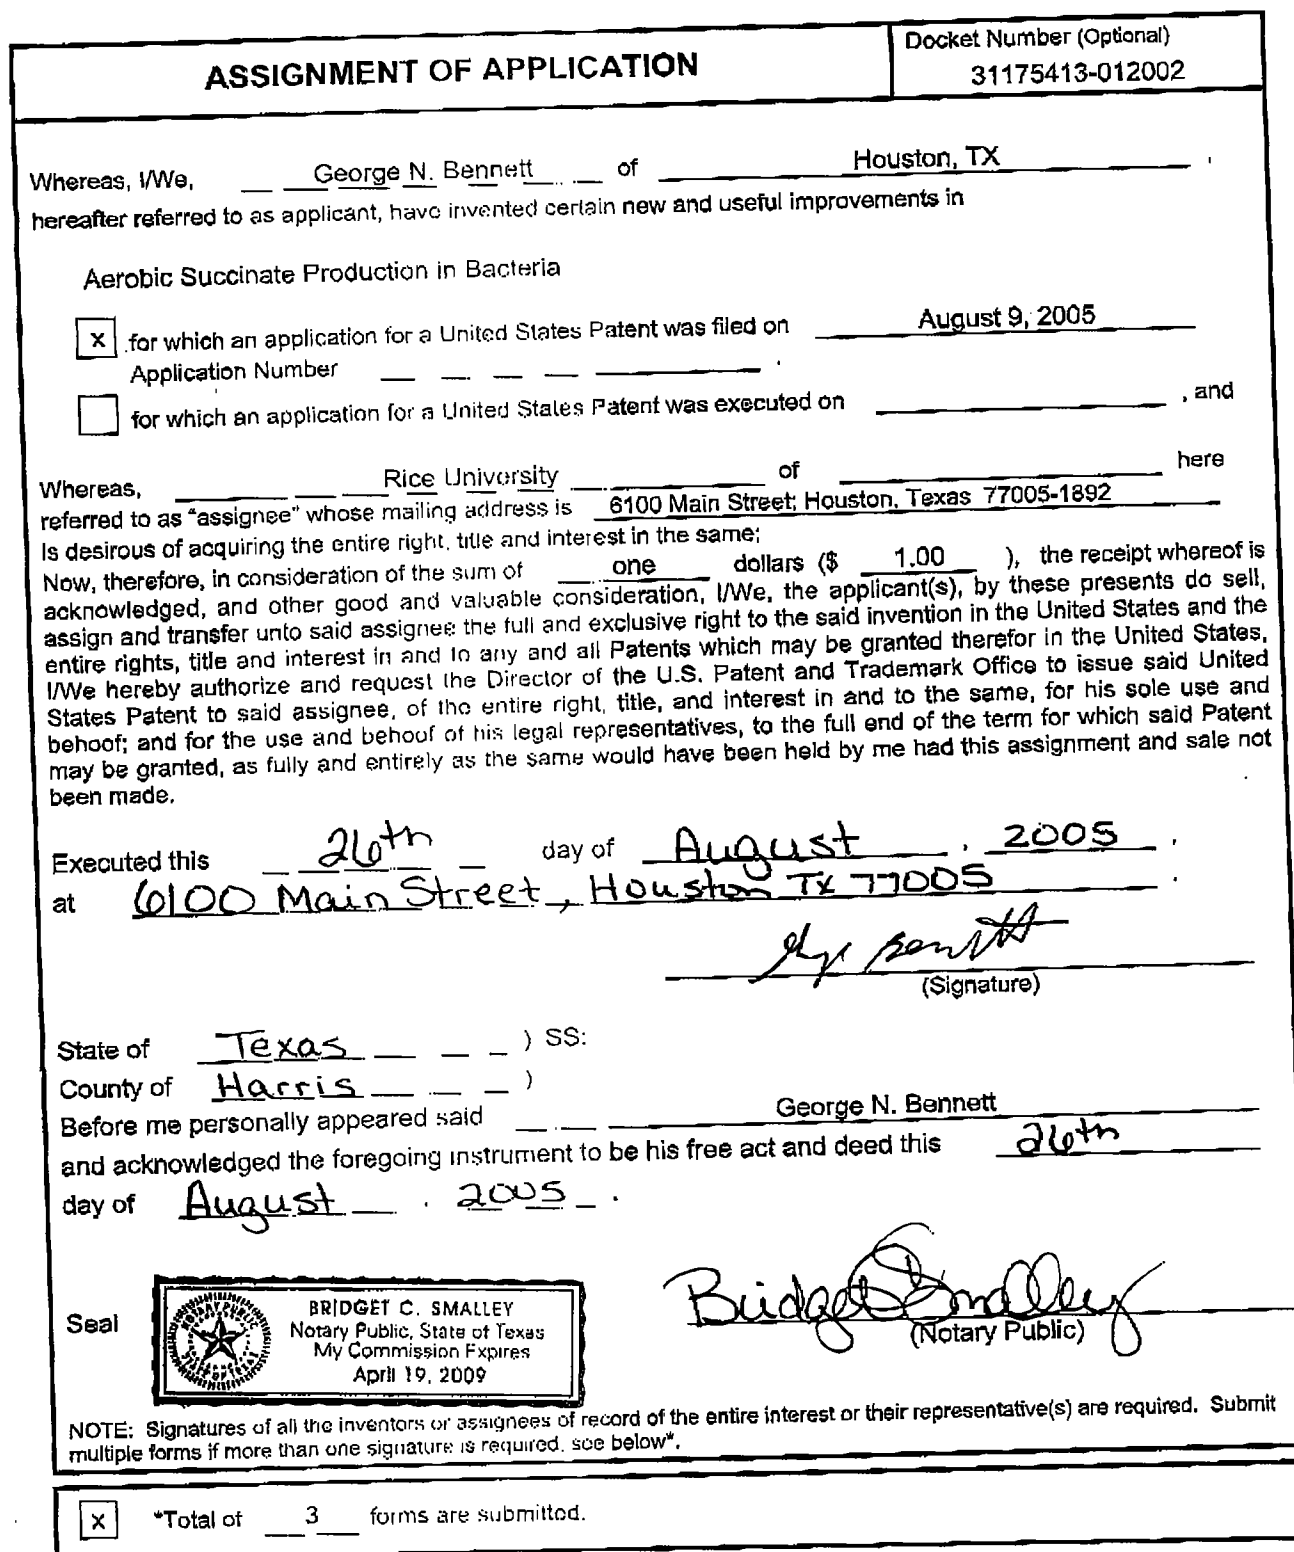 ASSIGNMENT OF APPLICATION
Docket Number (Optional)
31175413-012002
Whereas, I/We, George N. Bennett of Houston, TX ,
hereafter referred to as applicant, have invented certain new and useful improvements in
Aerobic Succinate Production in Bacteria
x for which an application for a United States Patent was filed on August 9, 2005
Application Number .
for which an application for a United States Patent was executed on , and
Whereas, Rice University of here
referred to as "assignee" whose mailing address is 6100 Main Street; Houston, Texas 77005-1892
Is desirous of acquiring the entire right, title and interest in the same;
Now, therefore, in consideration of the sum of one dollars ($ 1.00 ), the receipt whereof is
acknowledged, and other good and valuable consideration, I/We, the applicant(s), by these presents do sell,
assign and transfer unto said assignee the full and exclusive right to the said invention in the United States and the
entire rights, title and interest in and to any and all Patents which may be granted therefor in the United States,
I/We hereby authorize and request the Director of the U.S. Patent and Trademark Office to issue said United
States Patent to said assignee, of the entire right, title, and interest in and to the same, for his sole use and
behoof; and for the use and behoof of his legal representatives, to the full end of the term for which said Patent
may be granted, as fully and entirely as the same would have been held by me had this assignment and sale not
been made.
Executed this 26th day of August , 2005 .
at 6100 Main Street, Houston TX 77005 .
George Bennett
(Signature)
State of Texas ) SS:
County of Harris )
Before me personally appeared said George N. Bennett
and acknowledged the foregoing instrument to be his free act and deed this 26th
day of August , 2005 .
Seal
NOTARY PUBLIC
STATE OF TEXAS
BRIDGET C. SMALLEY
Notary Public, State of Texas
My Commission Expires
April 19, 2009
Bridget Smalley
(Notary Public)
NOTE: Signatures of all the inventors or assignees of record of the entire interest or their representative(s) are required. Submit
multiple forms if more than one signature is required, see below*.
x *Total of 3 forms are submitted.